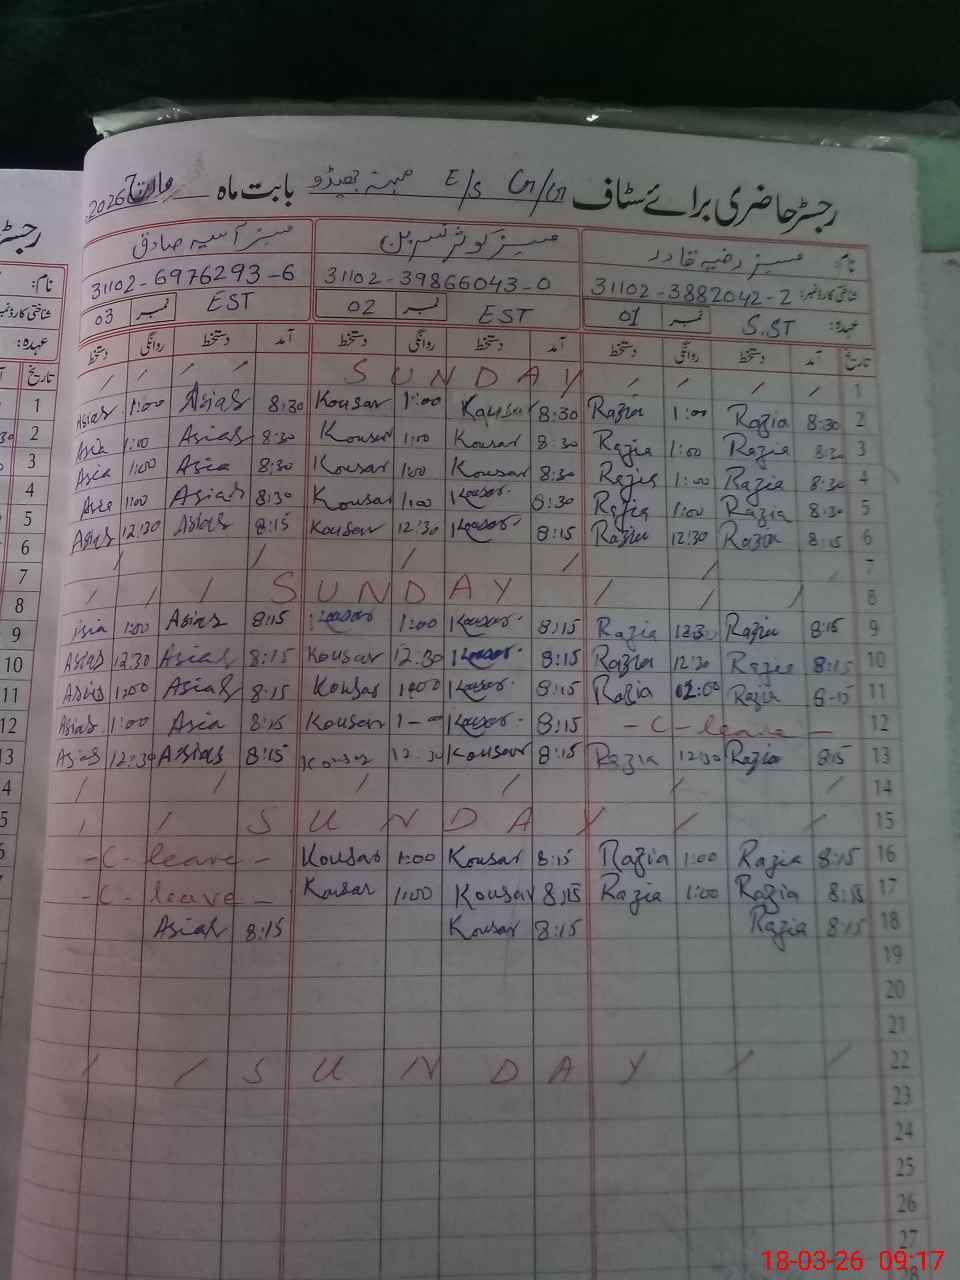 رجسٹر حاضری برائے سٹاف E/S بابت ماہ مارچ 2026
نام: مسز رضیہ قادر مسز کوثر نسرین مسز آسیہ صادق
شناختی کارڈ نمبر: 31102-3882042-2 31102-39866043-0 31102-6976293-6
عہدہ: S.ST نمبر 01 EST نمبر 02 EST نمبر 03
تاریخ آمد دستخط روانگی دستخط آمد دستخط روانگی دستخط آمد دستخط روانگی دستخط
1 SUNDAY
2 8:30 Razia 1:00 Razia 8:30 Kousar 1:00 Kousar 8:30 Asias 1:00 Asias
3 8:30 Razia 1:00 Razia 8:30 Kousar 1:00 Kousar 8:30 Asias 1:00 Asia
4 8:30 Razia 1:00 Razia 8:30 Kousar 1:00 Kousar 8:30 Asia 1:00 Asia
5 8:30 Razia 1:00 Razia 8:30 Kousar 1:00 Kousar 8:30 Asias 1:00 Asia
6 8:15 Razia 12:30 Razia 8:15 Kousar 12:30 Kousar 8:15 Asias 12:30 Asias
7
8 SUNDAY
9 8:15 Razia 12:30 Razia 8:15 Kousar 1:00 Kousar 8:15 Asias 1:00 Asia
10 8:15 Razia 12:30 Razia 8:15 Kousar 12:30 Kousar 8:15 Asias 12:30 Asias
11 8-15 Razia 02:00 Razia 8:15 Kousar Kousar 8:15 Asias Asias
12 -C-leave- 8:15 Kousar Kousar 8:15 Asia 1:00 Asias
13 8:15 Razia 12:30 Razia 8:15 Kousar 12:30 Kousar 8:15 Asias 12:30 Asias
14
15 SUNDAY
16 8:15 Razia 1:00 Razia 8:15 Kousar 1:00 Kousar -C-leave-
17 8:15 Razia 1:00 Razia 8:15 Kousar 1:00 Kousar -C-leave-
18 8:15 Razia 8:15 Kousar 8:15 Asias
19
20
21
22 SUNDAY
23
24
25
26
27
28
رجسٹر
نام:
شناختی کارڈ نمبر
عہدہ:
تاریخ
1
2
3
4
5
6
7
8
9
10
11
12
13
18-03-26 09:17